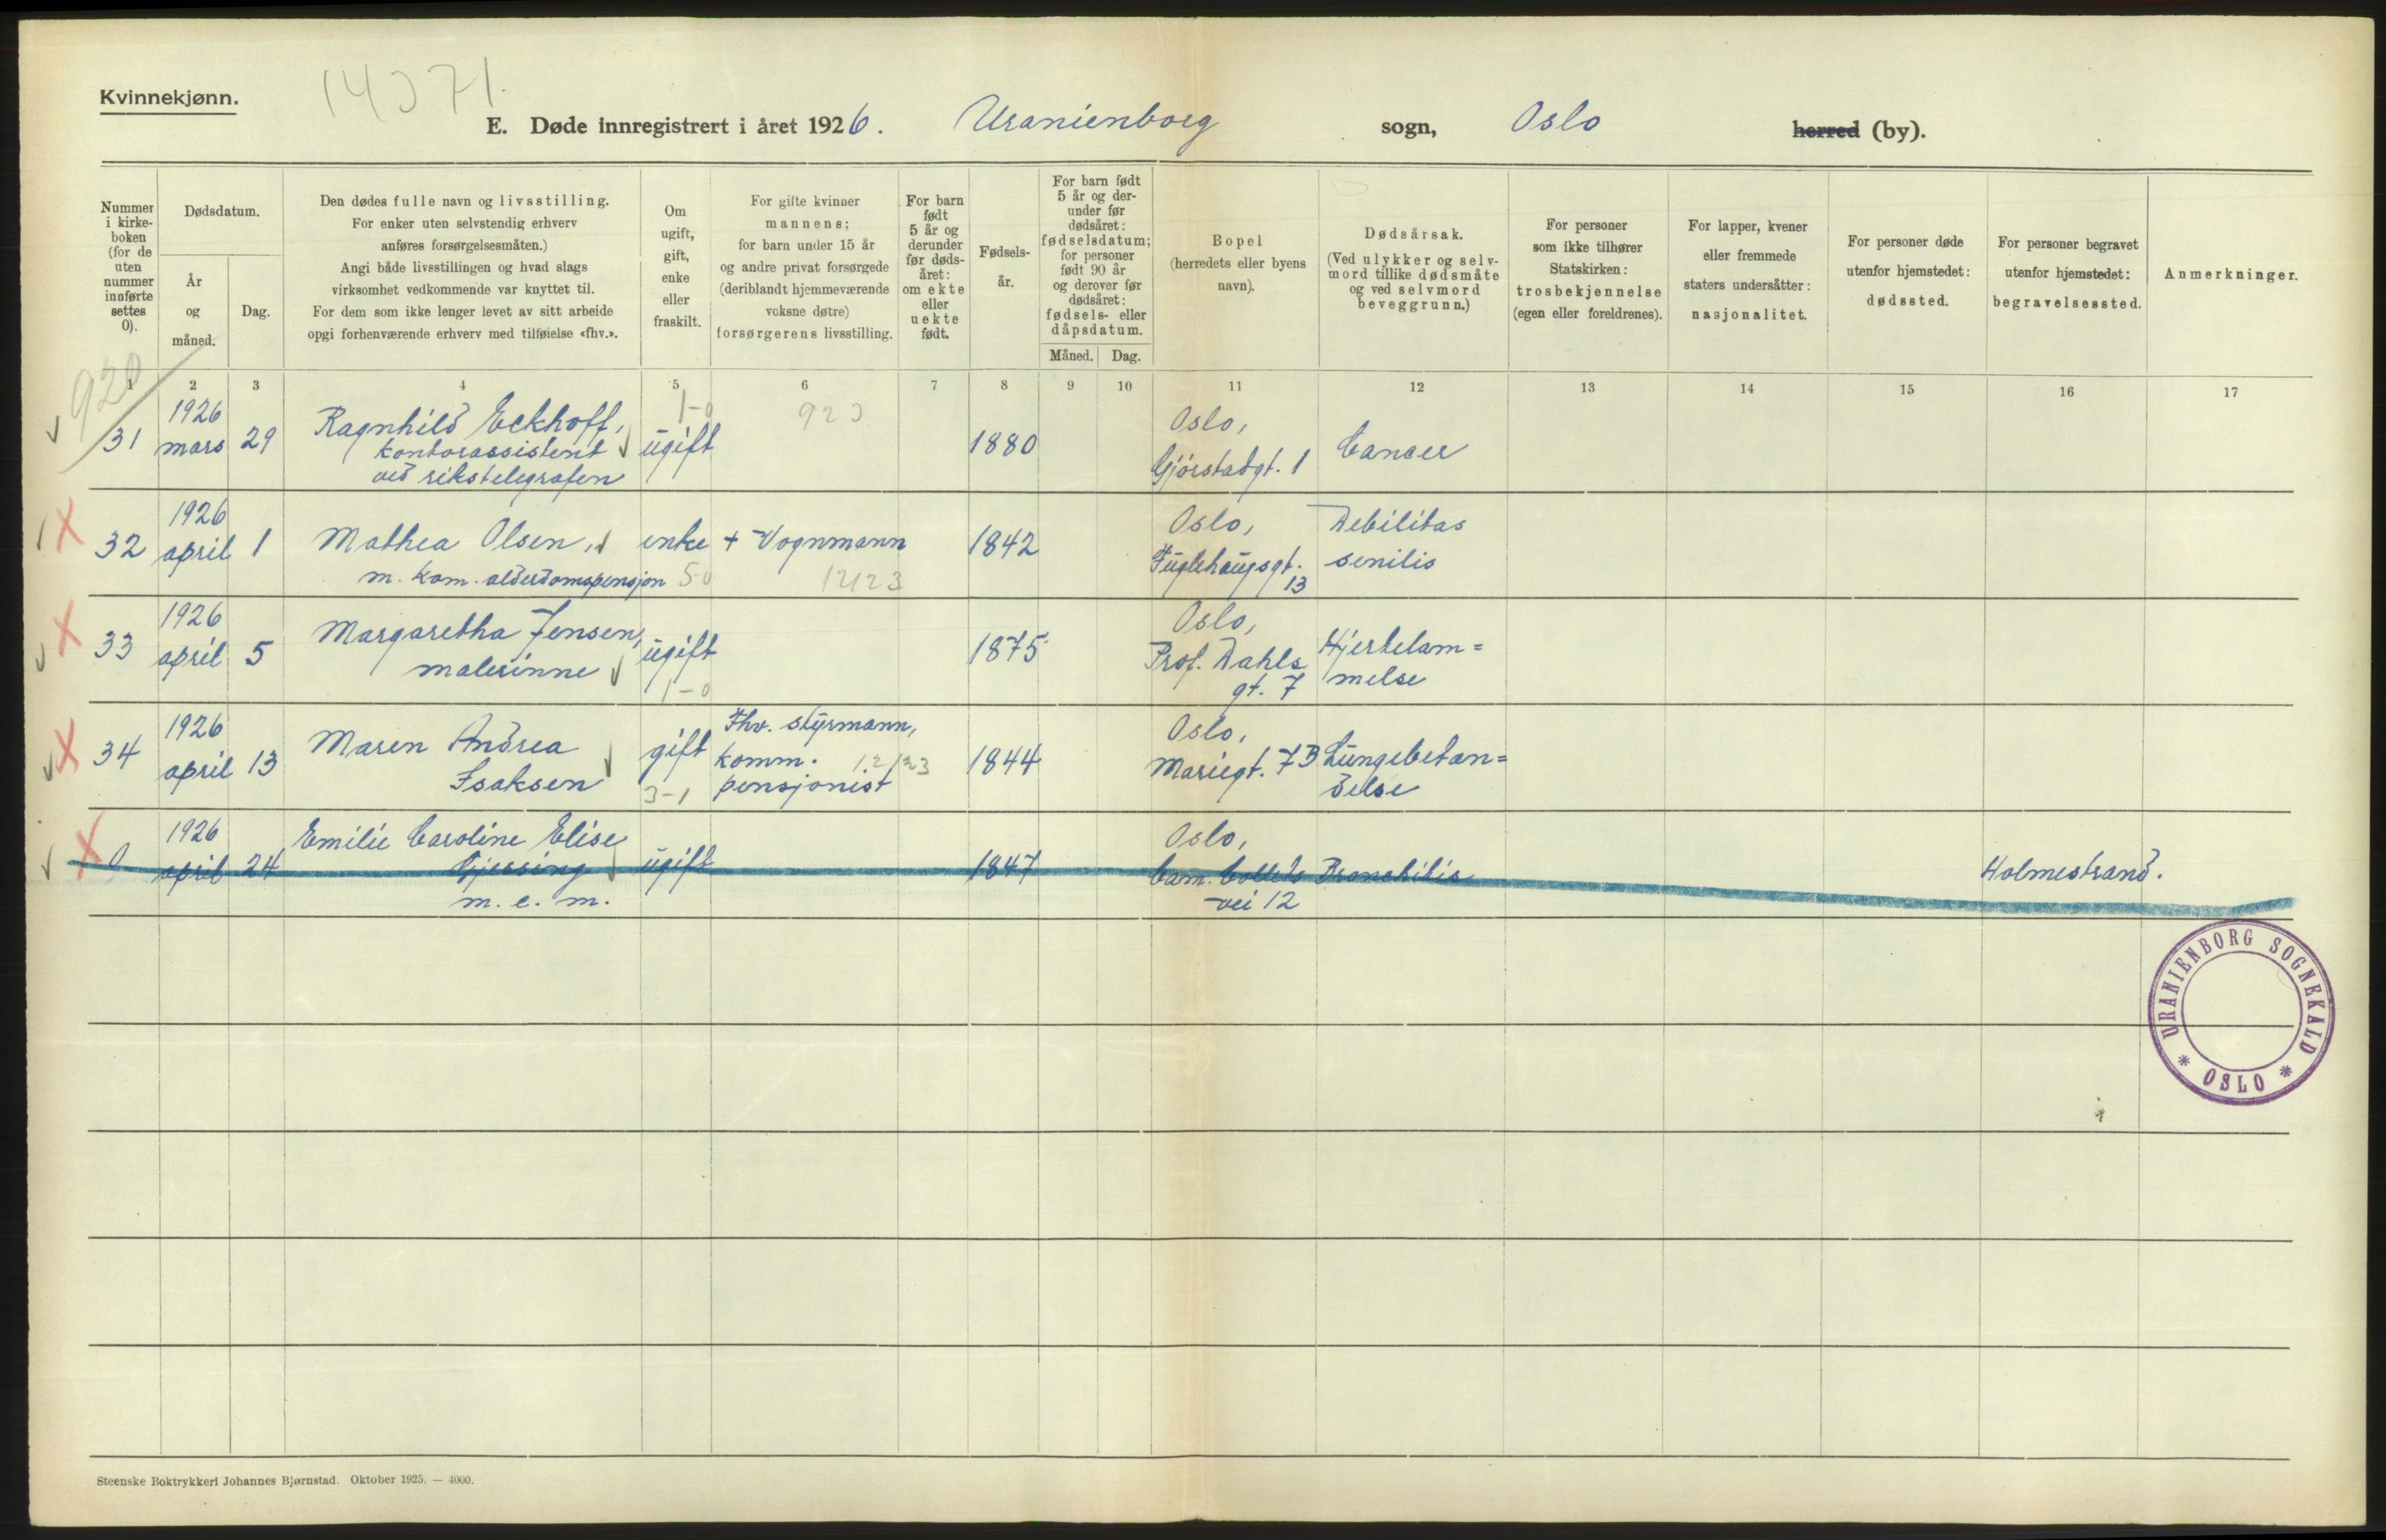 Kvinnekjønn.
14371.
E. Døde innregistrert i året 1926. Uranienborg sogn, Oslo herred (by).
Nummer i kirke-boken (for de uten nummer innførte settes 0).
Dødsdatum.
År og måned.
Dag.
Den dødes fulle navn og livsstilling.
For enker uten selvstendig erhverv
anføres forsørgelsesmåten.)
Angi både livsstillingen og hvad slags
virksomhet vedkommende var knyttet til.
For dem som ikke lenger levet av sitt arbeide
opgi forhenværende erhverv med tilføielse «fhv.».
Om
ugift,
gift,
enke
eller
fraskilt.
For gifte kvinner
mannens;
for barn under 15 år
og andre privat forsørgede
(deriblandt hjemmeværende
voksne døtre)
forsørgerens livsstilling.
For barn
født
5 år og
derunder
før døds-
året:
om ekte
eller
uekte
født.
Fødsels-
år.
For barn født
5 år og der-
under før
dødsåret:
fødselsdatum;
for personer
født 90 år
og derover før
dødsåret:
fødsels- eller
dåpsdatum.
Måned. Dag.
Bopel
(herredets eller byens
navn).
Dødsårsak.
(Ved ulykker og selv-
mord tillike dødsmåte
og ved selvmord
beveggrunn.)
For personer
som ikke tilhører
Statskirken:
trosbekjennelse
(egen eller foreldrenes).
For lapper, kvener
eller fremmede
staters undersåtter:
nasjonalitet.
For personer døde
utenfor hjemstedet:
dødssted.
For personer begravet
utenfor hjemstedet:
begravelsessted.
Anmerkninger.
1 2 3 4 5 6 7 8 9 10 11 12 13 14 15 16 17
920
1926 Ragnhild Eckhoff, 1-0 923 Oslo,
31 mars 29 kontorassistent ugift 1880 Cancer
ved rikstelegrafen Gjörstadgt. 1
1926 Oslo, Debilitas
32 april 1 Mathea Olsen, enke + Vognmann 1842 Fuglehaugsgt. senilis
m. kom. alderdomspensjon 5-0 12123 13
1926 Margaretha Jensen, Oslo,
33 april 5 malerinne ugift 1875 Prof. Dahls Hjertelam=
1-0 gt. 7 melse
1926 Maren Andrea Fhv. styrmann, Oslo,
34 april 13 Isaksen gift komm. 12123 1844 Mariegt. 73 Lungebetæn=
3-1 pensjonist delse
1926 Emilie Caroline Elise Oslo,
0 april 24 Gjessing ugift 1847 Cam. Colletts Bronchitis Holmestrand.
m. e. m. vei 12
URANIENBORG SOGNEKALD * OSLO *
Steenske Boktrykkeri Johannes Bjørnstad. Oktober 1925. — 4000.